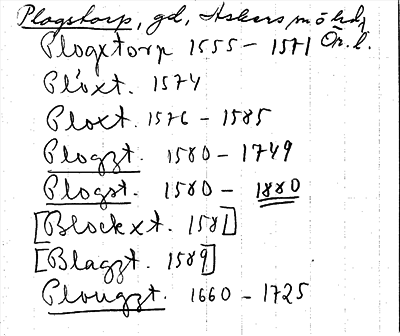 Plogstorp, gd, Askers sn ö hd,
Ör. l.
Plogxtorp 1555 – 1571
Plöxt. 1574
Ploxt. 1576 – 1585
Plogzt. 1580 – 1749
Plogst. 1580 – 1880
[Blockxt. 1581]
[Blagzt. 1589]
Plougzt. 1660 – 1725